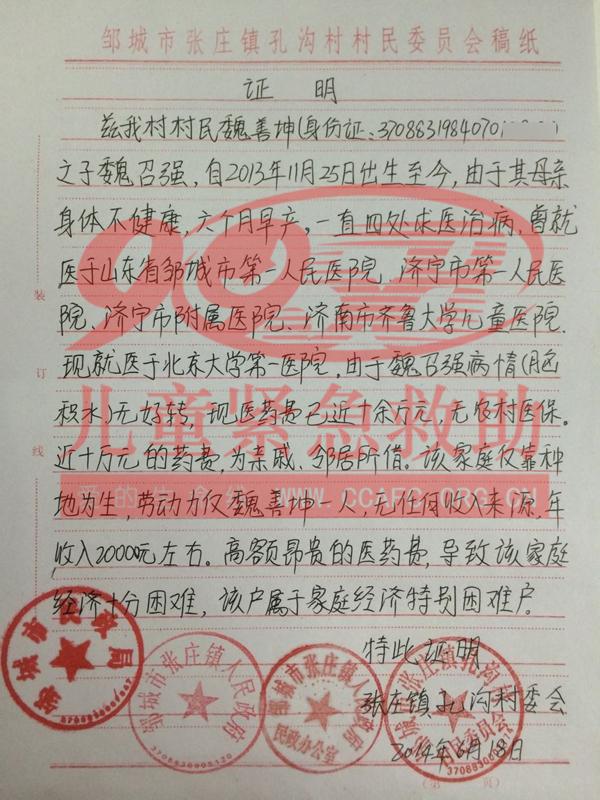 邹城市张庄镇孔沟村村民委员会稿纸
证 明
兹我村村民魏善坤(身份证:37088319840701
之子魏召强,自2013年11月25日出生至今,由于其母亲
身体不健康,六个月早产,一直四处求医治病,曾就
医于山东省邹城市第一人民医院、济宁市第一人民医
院、济宁市附属医院、济南市齐鲁大学儿童医院.
现就医于北京大学第一医院,由于魏召强病情(脑
积水)无好转,现医药费已近十余万元,无农村医保。
近十万元的药费,为亲戚、邻居所借。该家庭仅靠种
地为生,劳动力仅魏善坤一人,无任何收入来源,年
收入2000元左右。高额昂贵的医药费,导致该家庭
经济十分困难,该户属于家庭经济特别困难户。
特此证明
张庄镇孔沟村委会
2014年6月18日
装
订
线
儿童紧急救助
WWW.CCAFC.ORG.CN
邹城市民政局
邹城市张庄镇人民政府
3708830005120
邹城市张庄镇人民政府
民政办公室
张庄镇孔沟村
村民委员会